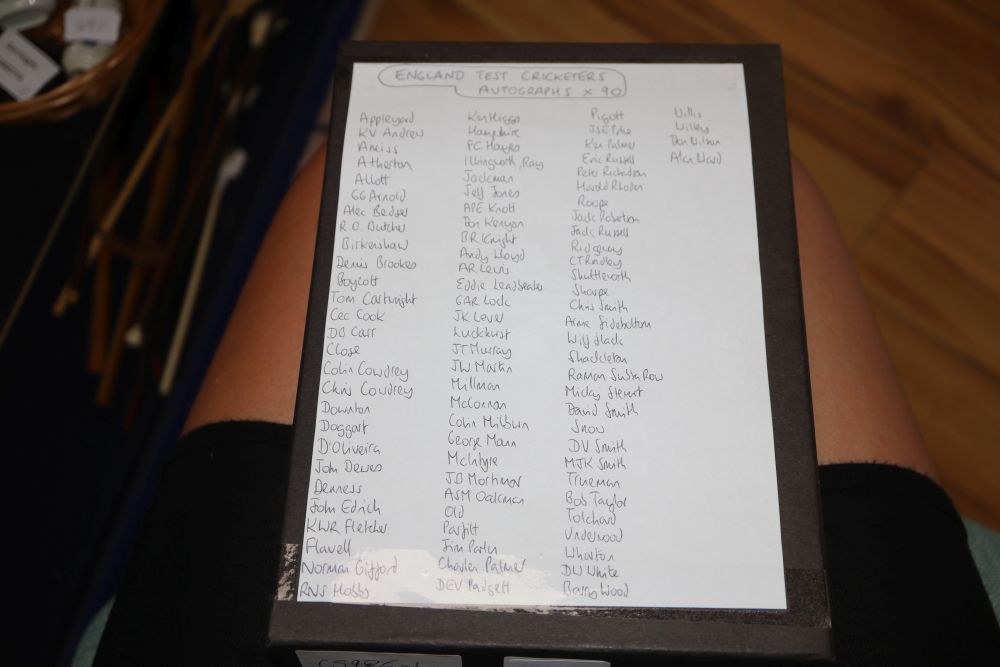 ENGLAND TEST CRICKETERS
AUTOGRAPHS x 90
Appleyard
KV Andrew
Amiss
Atherton
Allott
GG Arnold
Alec Bedser
R.O. Butcher
Birkenshaw
Denis Brookes
Boycott
Tom Cartwright
Cec Cook
DB Carr
Close
Colin Cowdrey
Chris Cowdrey
Downton
Doggart
D'Oliveira
John Dewes
Denness
John Edrich
KWR Fletcher
Flavell
Norman Gifford
RNS Hobbs
Ken Higgs
Hampshire
FC Hayes
Illingworth, Ray
Jackman
Jeff Jones
APE Knott
Don Kenyon
BR Knight
Andy Lloyd
AR Lewis
Eddie Leadbeater
GAR Lock
JK Lever
Luckhurst
JT Murray
JW Martin
Millman
McConnan
Colin Milburn
George Mann
McIntyre
JB Mortimor
ASM Oakman
Old
Parfitt
Jim Parks
Charles Palmer
DEV Padgett
Pigott
JSE Price
Ken Palmer
Eric Russell
Peter Richardson
Harold Rhodes
Roope
Jack Robertson
Jack Russell
Ridgway
CT Radley
Shuttleworth
Sharpe
Chris Smith
Arnie Sidebottom
Wilf Slack
Shackleton
Raman Subba Row
Micky Stewart
David Smith
Snow
DV Smith
MJK Smith
Trueman
Bob Taylor
Tolchard
Underwood
Wharton
DW White
Barry Wood
Willis
Willey
Don Wilson
Alan Ward